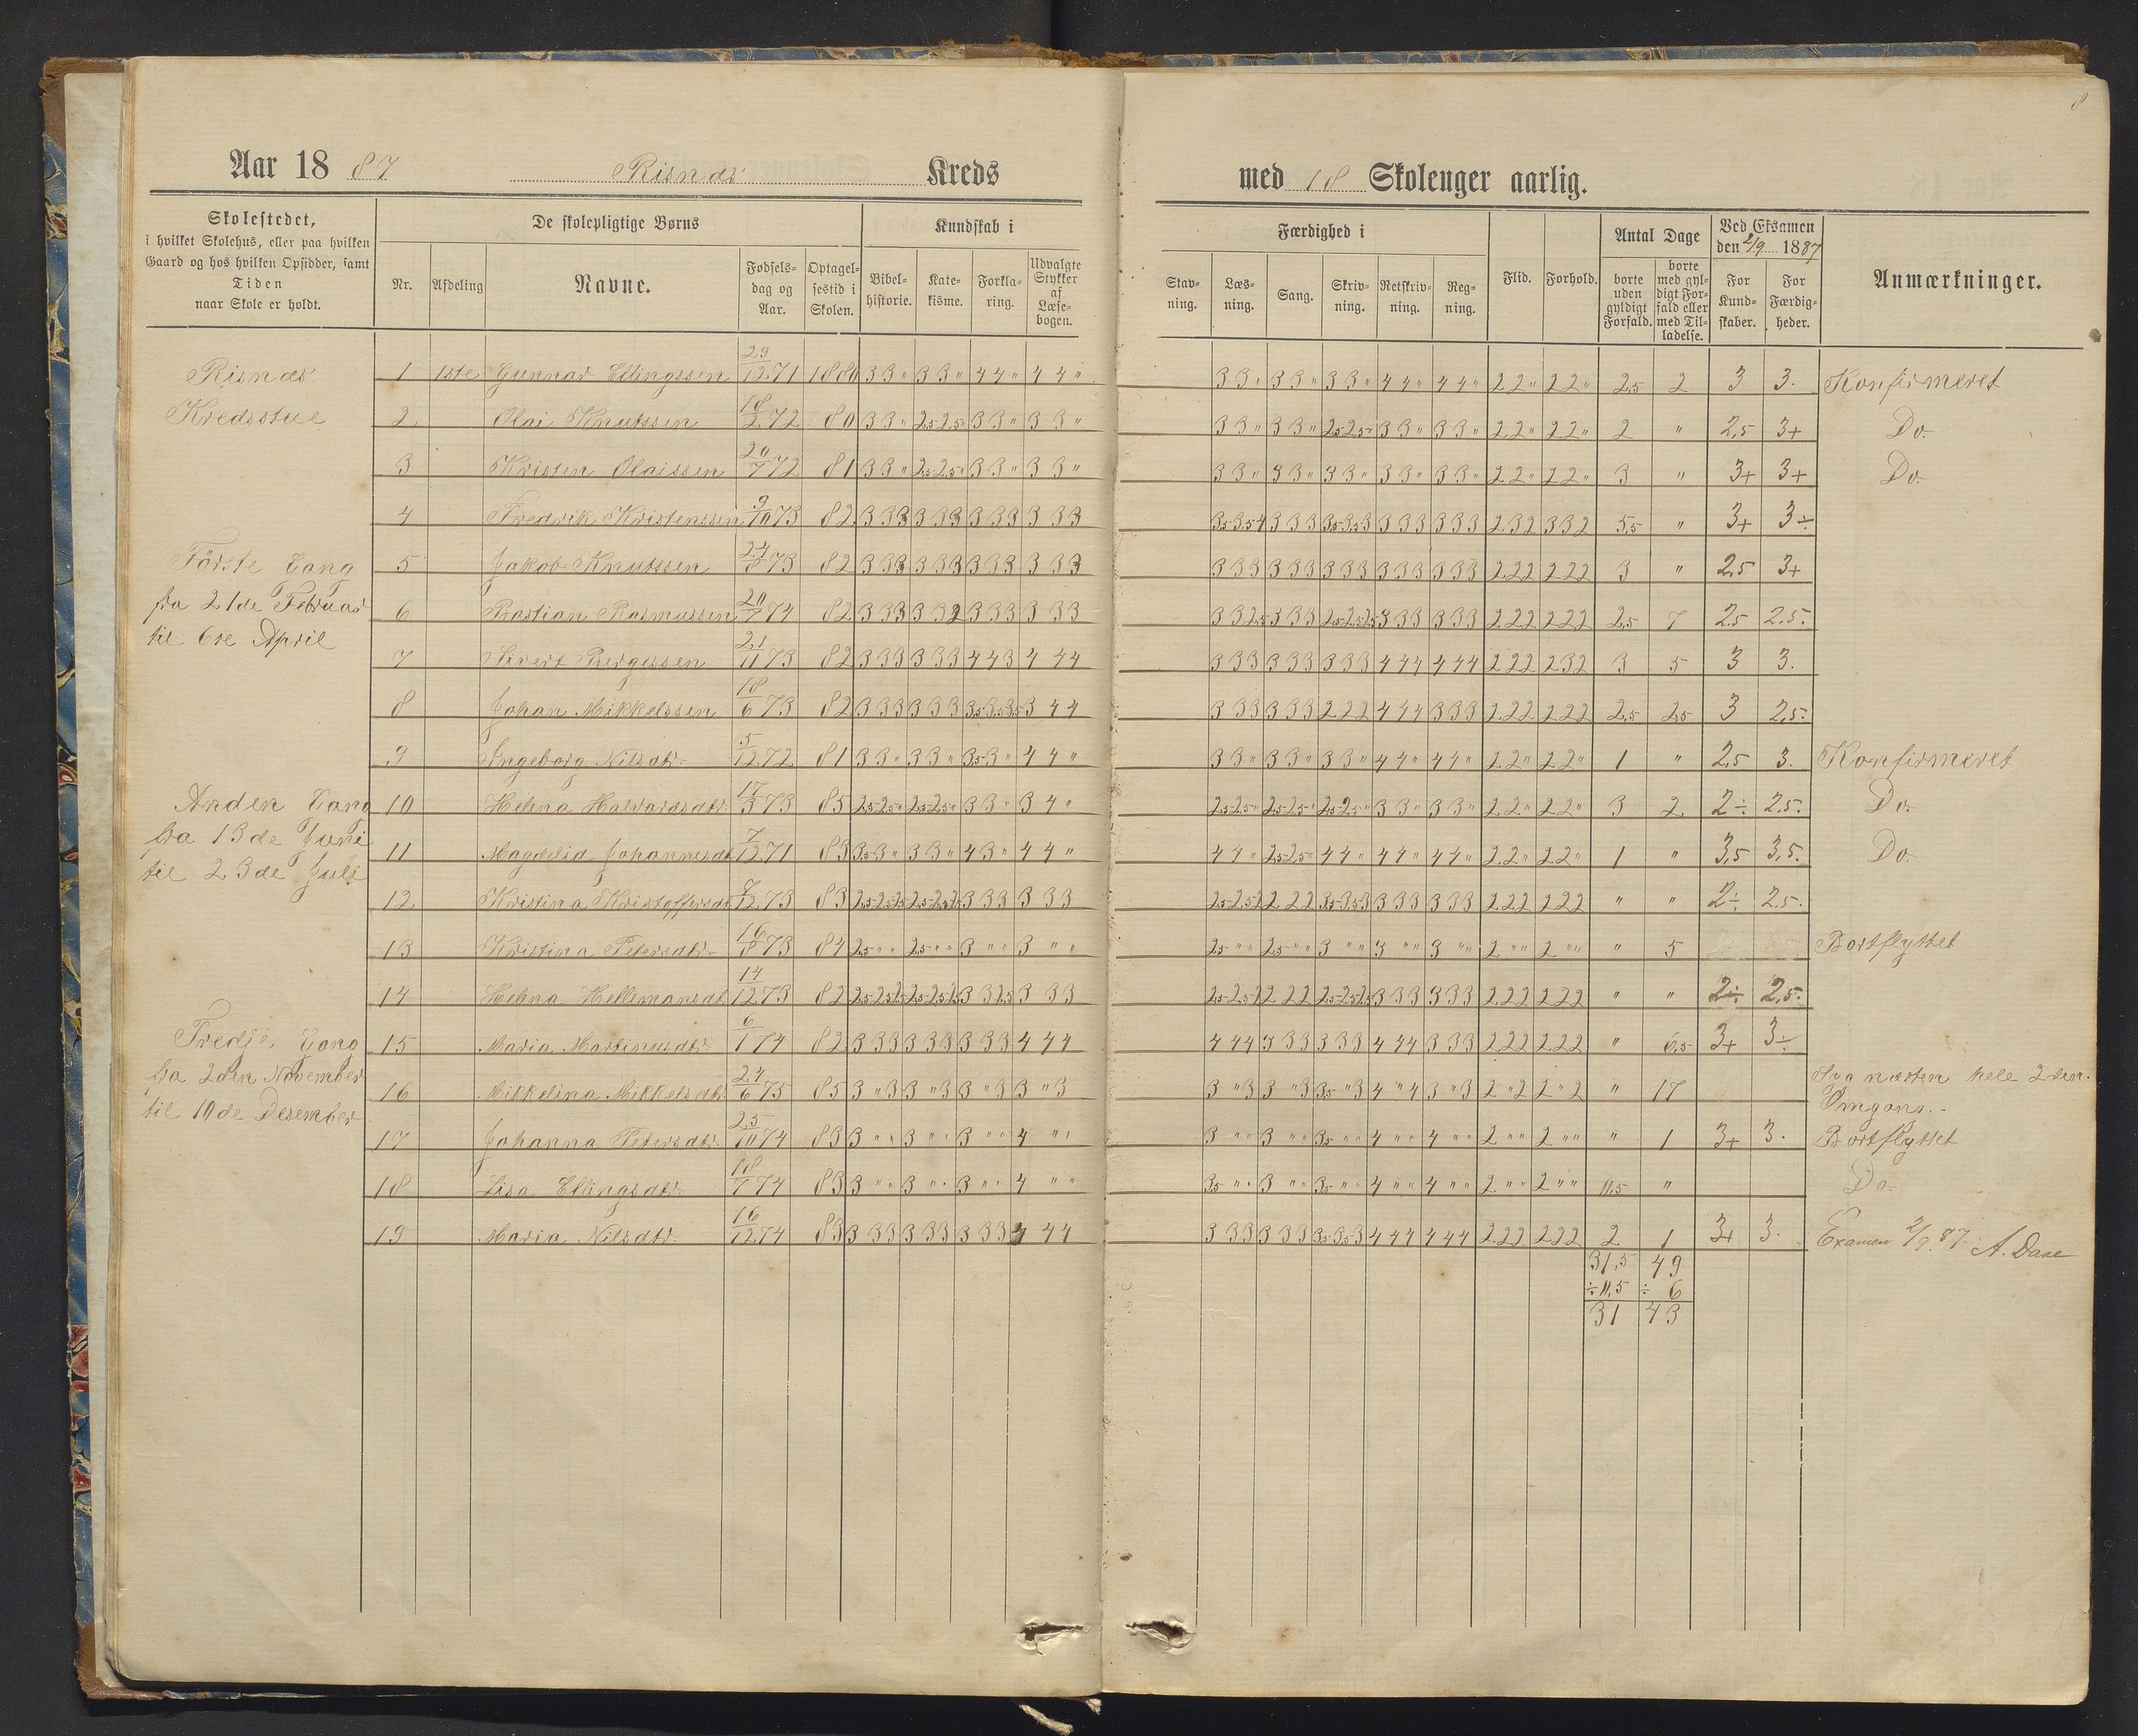 8
Aar 1887 Risnæs Kreds med 18 Skoleuger aarlig.
Skolestedet, i hvilket Skolehus, eller paa hvilken Gaard og hos hvilken Opsidder, samt Tiden naar Skole er holdt.
De skolepligtige Børns
Nr. Afdeling Navne. Fødsels-dag og Aar. Optagel-sestid i Skolen.
Kundskab i
Bibel-historie. Kate-kisme. Forkla-ring. Udvalgte Stykker af Læse-bogen.
Færdighed i
Stav-ning. Læs-ning. Sang. Skriv-ning. Retskriv-ning. Reg-ning.
Flid. Forhold.
Antal Dage
borte uden gyldigt Forfald. borte med gyl-digt For-fald eller med Til-ladelse.
Ved Eksamen den 2/9 1887
For Kund-skaber. For Færdig-heder.
Anmærkninger.
Risnæs
Kredsstue
Første Gang
fra 21de Februar
til 6te April
Anden Gang
fra 13de Juni
til 23de Juli
Tredje Gang
fra 2den November
til 10de Desember
1 1ste Gunnar Ellingssen 29/12 71 1880 3 3 " 3 3 " 4 4 " 4 4 " 3 3 " 3 3 " 3 3 " 4 4 " 4 4 " 2 2 " 2 2 " 2,5 2 3 3. Konfirmeret
2 Olai Knutssen 18/2 72 80 3 3 " 2,5 2,5 " 3 3 " 3 3 " 3 3 " 3 3 " 2,5 2,5 " 3 3 " 3 3 " 2 2 " 2 2 " 2 " 2,5 3+ Do.
3 Kristen Olaissen 20/7 72 81 3 3 " 2,5 2,5 " 3 3 " 3 3 " 3 3 " 3 3 " 3 3 " 3 3 " 3 3 " 2 2 " 2 2 " 3 " 3+ 3+ Do.
4 Fredrik Kristenssen 9/10 73 82 3 3 3 3 3 3 3 3 3 3 3 3 3,5 3,5 4 3 3 3 3,5 3,5 3 3 3 3 3 3 3 2 3 2 3 3 2 5,5 " 3+ 3÷
5 Jakob Knutssen 24/8 73 82 3 3 3 3 3 3 3 3 3 3 3 3 3 3 3 3 3 3 3 3 3 3 3 3 3 3 3 2 2 2 2 2 2 3 " 2,5 3+
6 Bastian Rasmussen 20/7 74 82 3 3 3 3 3 2 3 3 3 3 3 3 3 3 2,5 3 3 3 2,5 2,5 2,5 3 3 3 3 3 3 2 2 2 2 2 2 2,5 7 2,5 2,5.
7 Sivert Bergessen 21/11 73 82 3 3 3 3 3 3 4 4 3 4 4 4 3 3 3 3 3 3 3 3 3 4 4 4 4 4 4 2 2 2 2 3 2 3 5 3 3.
8 Johan Mikkelssen 18/6 73 82 3 3 3 3 3 3 3,5 3,5 3,5 3 4 4 3 3 3 3 3 3 2 2 2 4 4 4 3 3 3 2 2 2 2 2 2 2,5 2,5 3 2,5.
9 Ingeborg Nilsdtr. 5/12 72 81 3 3 " 3 3 " 3,5 3 " 4 4 " 3 3 " 3 3 " 3 3 " 4 4 " 4 4 " 2 2 " 2 2 " 1 " 2,5 3. Konfirmeret
10 Helena Halvardsdtr. 17/3 73 85 2,5 2,5 " 2,5 2,5 " 3 3 " 3 4 " 2,5 2,5 " 2,5 2,5 " 2,5 2,5 " 3 3 " 3 3 " 2 2 " 2 2 " 3 2 2÷ 2,5. Do.
11 Magdelia Johannesdt 7/12 71 83 3,5 3 " 3 3 " 4 3 " 4 4 " 4 4 " 2,5 2,5 " 4 4 " 4 4 " 4 4 " 2 2 " 2 2 " 1 " 3,5 3,5. Do.
12 Kristina Kristoffersdt 7/12 73 83 2,5 2,5 2,5 2,5 2,5 2,5 3 3 3 3 3 3 2,5 2,5 2 2 2 2 3,5 3,5 3 3 3 3 3 3 3 2 2 2 2 2 2 " " 2÷ 2,5.
13 Kristina Petersdtr. 16/8 73 84 2,5 " " 2,5 " " 3 " " 3 " " 2,5 " " 2,5 " " 3 " " 3 " " 3 " " 2 " " 2 " " " 5 Bortflyttet
14 Helena Hellemansdt 14/12 73 82 2,5 2,5 2,5 2,5 2,5 2,5 3 3 2,5 3 3 3 2,5 2,5 2 2 2 2 2,5 2,5 2,5 3 3 3 3 3 3 2 2 2 2 2 2 " " 2÷ 2,5.
15 Maria Martinusdtr. 6/1 74 82 3 3 3 3 3 3 3 3 3 4 4 4 4 4 4 3 3 3 3 3 3 4 4 4 3 3 3 2 2 2 2 2 2 " 6,5 3+ 3÷
16 Mikkelina Mikkelsdtr. 24/6 75 85 3 " 3 3 " 3 3 " 3 3 " 3 3 " 3 3 " 3 3,5 " 3 4 " 4 3 " 3 2 " 2 2 " 2 " 17 næsten hele 2den. Omgang.
17 Johanna Petersdtr. 25/10 74 83 3 " " 3 " " 3 " " 4 " " 3 " " 3 " " 3,5 " " 4 " " 4 " " 2 " " 2 " " " 1 3+ 3. Bortflyttet
18 Lisa Ellingsdtr. 18/7 74 83 3 " " 3 " " 3 " " 4 " " 3,5 " " 3 " " 3,5 " " 4 " " 4 " " 2 " " 2 " " 0,5 " Do.
19 Maria Nilsdtr. 16/12 74 83 3 3 3 3 3 3 3 3 3 4 4 4 3 3 3 3 3 3 3,5 3,5 3 4 4 4 4 4 4 2 2 2 2 2 2 2 1 3+ 3. Examen 2/9 87. A. Dase
31,5 49
÷ 0,5 ÷ 6
31 43